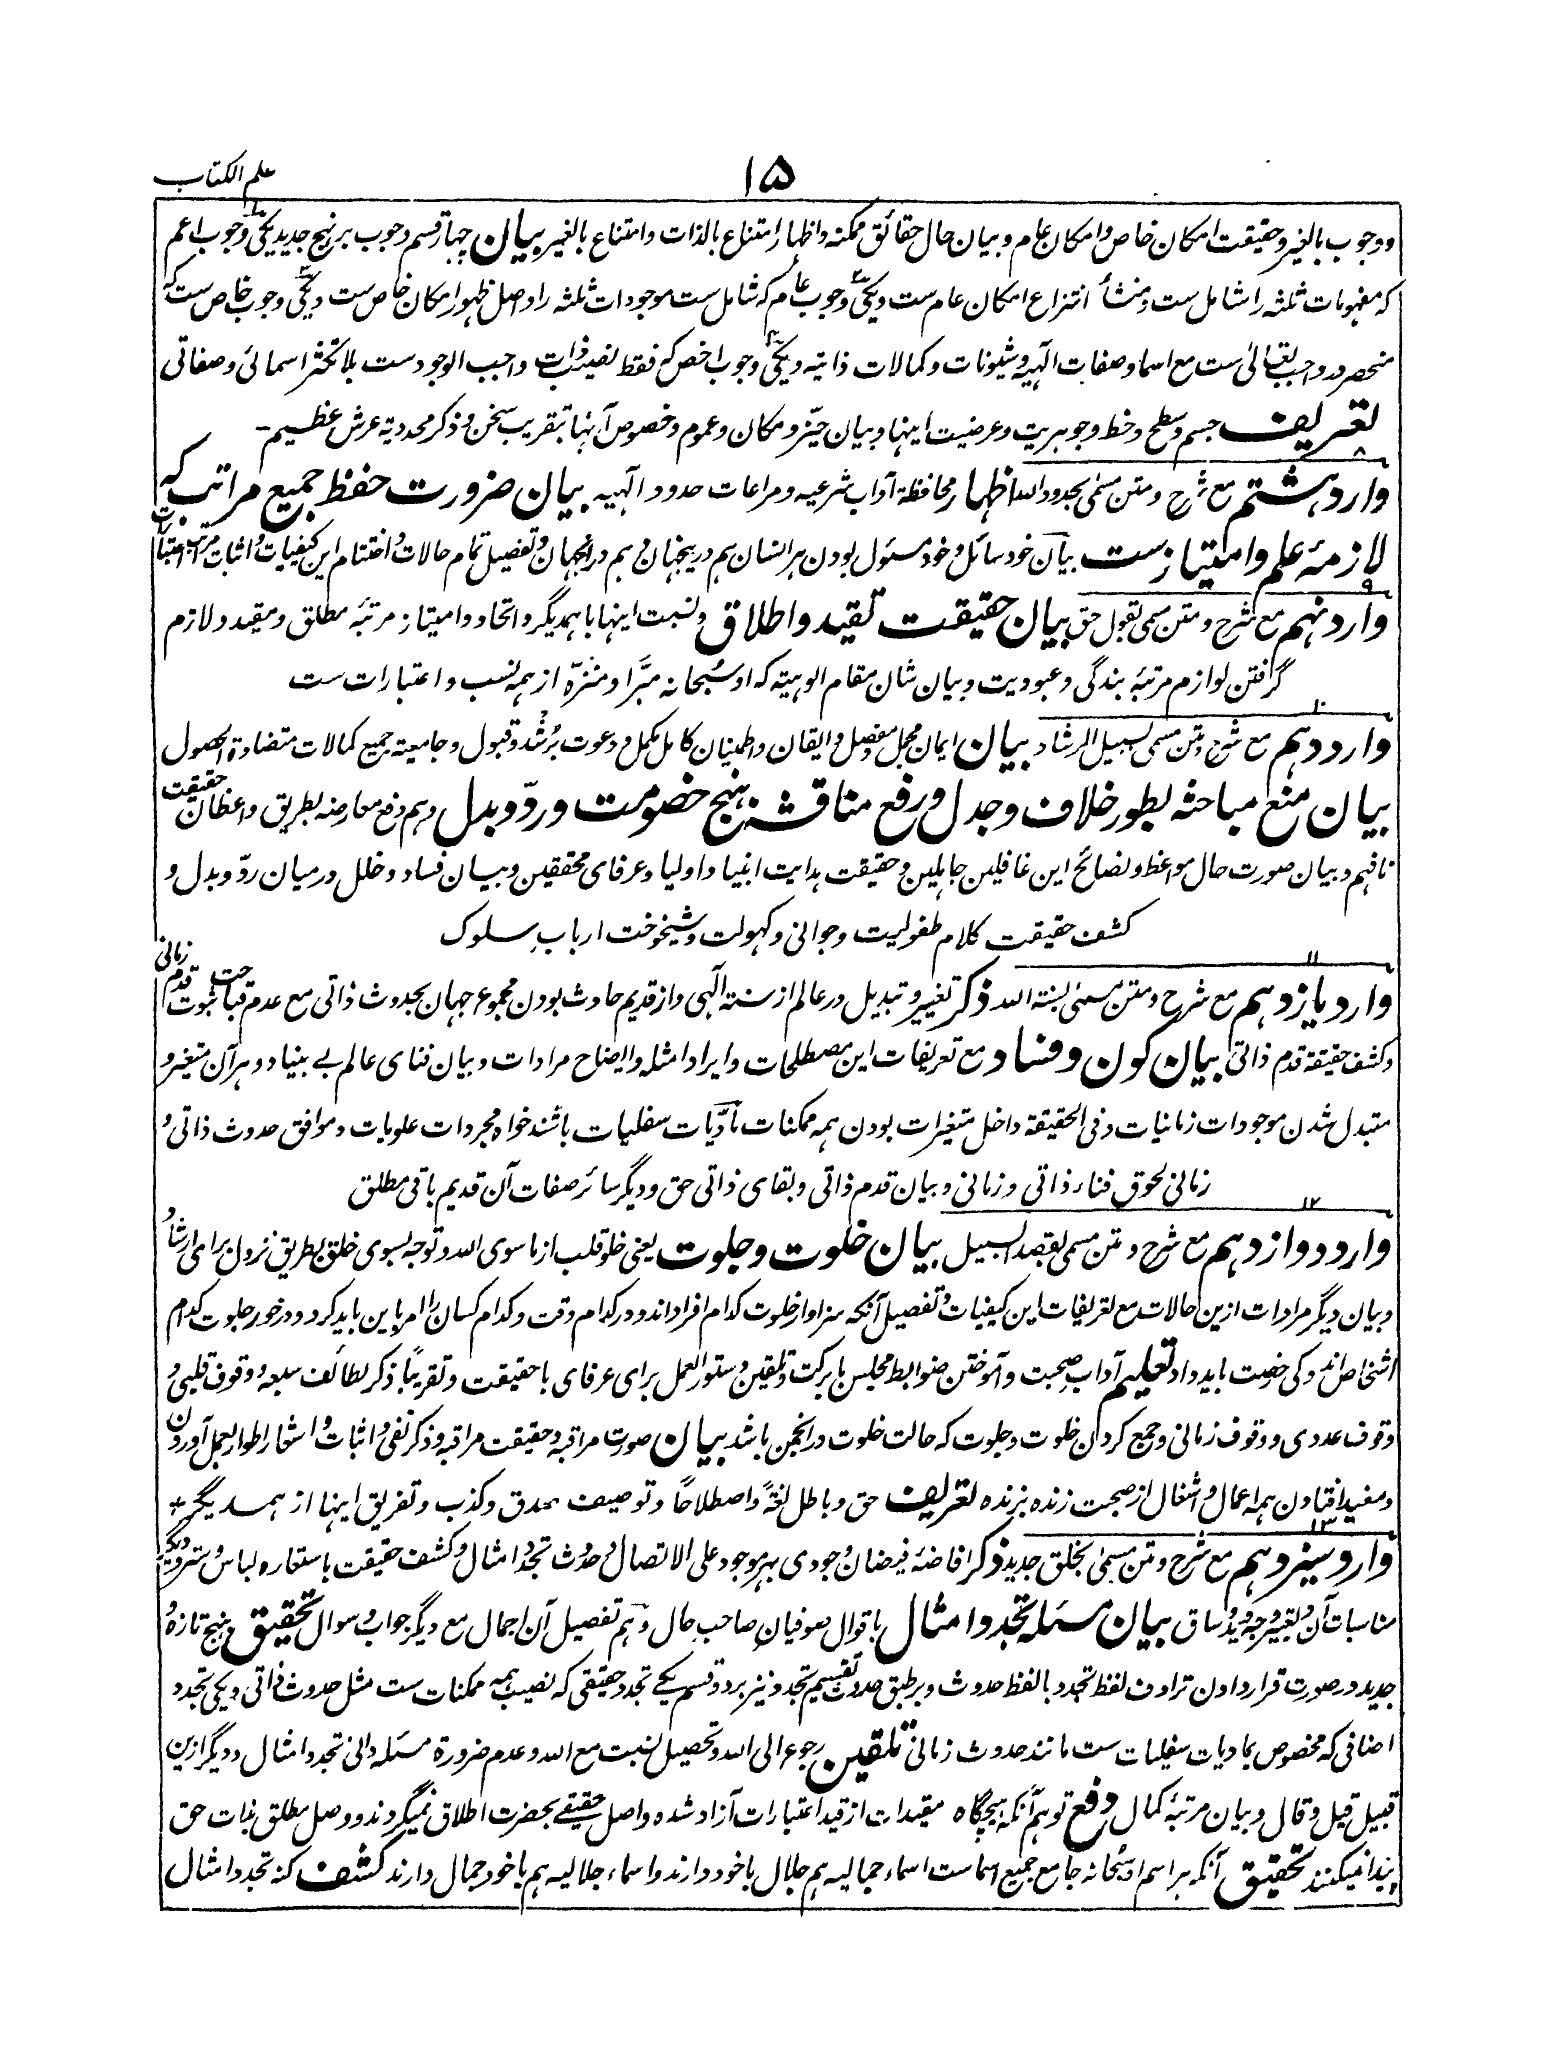 علم الکتاب
۱۵
و وجوب بالغیر و حقیقت امکان خاص و امکان عام و بیان حال حقائق ممکنه و اظهار امتناع بالذات و امتناع بالغیر بیان چهار قسم وجوب بر نهج جدید یکی وجوب اعم
که مفهومات ثلثه را شامل ست و منشأ انتزاع امکان عام ست و یکی وجوب عام که شامل ست موجودات ثلثه را و اصل ظهور امکان خاص ست و یکی وجوب خاص ست که
منحصر در واجب تعالیٰ ست مع اسما و صفات الٓهیه و شیونات و کمالات ذاتیه و یکی وجوب اخص که فقط نصیب ذات واجب الوجود ست بلا تکثر اسمائی و صفاتی
تعریف جسم و سطح و خط و جوهریت و عرضیت اینها و بیان حیّز و مکان و عموم و خصوص آنها بتقریب سخن و ذکر محددیة عرش عظیم –
۸
وارد هشتم مع شرح و متن مسمیٰ بحدود الله اظهار محافظة آداب شرعیه و مراعات حدود الٓهیه بیان ضرورت حفظ جمیع مراتب که
لازمهٔ علم و امتیاز ست بیان خود سائل و خود مسئول بودن هر انسان هم درینجهان و هم در آنجهان و تفصیل تمام حالات و اختتام این کیفیات و اثبات مرتب اعتبارات
۹
وارد نهم مع شرح و متن مسمی بقول حق بیان حقیقت تقید و اطلاق و نسبت اینها با همدیگر و اتحاد و امتیاز مرتبهٔ مطلق و مقید و لازم
گرفتن لوازم مرتبهٔ بندگی و عبودیت و بیان شان مقام الوهیته که او سُبحانه مبرَّا و منزّه از همه نسب و اعتبارات ست
۱۰
وارد دهم مع شرح و متن مسمی بسبیل الرشاد بیان ایمان مجمل و مفصل و ایقان و اطمینان کامل مکمل و دعوت برُشد و قبول و جامعیة جمیع کمالات متضادة الحصول
بیان منع مباحثه بطور خلاف و جدل و رفع مناقشه بنهج خصومت و ردّ و بدل و هم دفع معارضه بطریق واعظان حقیقت
نافهم و بیان صورت حال مواعظ و نصائح این غافلین جاهلین و حقیقت هدایت انبیا و اولیا و عرفای محققین و بیان فساد و خلل درمیان ردّ و بدل و
کشف حقیقت کلام طفولیت و جوانی و کهولت و شیخوخت ارباب سلوک
۱۱
وارد یازدهم مع شرح و متن مسمیٰ بسنة الله ذکر تغییر و تبدیل در عالم از سنة الٓهی و از قدیم حادث بودن مجموع جهان بحدوث ذاتی مع عدم قباحت ثبوت قدم زمانی
و کشف حقیقة قدم ذاتی بیان کون و فساد مع تعریفات این مصطلحات و ایراد امثله و ایضاح مرادات و بیان فنای عالم بے بنیاد و هر آن متغیر و
متبدل شدن موجودات زمانیات و فی الحقیقة داخل متغیرات بودن همه ممکنات مادّیات سفلیات باشند خواه مجردات علویات و موافق حدوث ذاتی و
زمانی لحوق فناء ذاتی و زمانی و بیان قدم ذاتی و بقای ذاتی حق و دیگر سائر صفات آن قدیم باقی مطلق
۱۲
وارد دوازدهم مع شرح و متن مسمی بقصد السبیل بیان خلوت و جلوت یعنی خلو قلب از ماسوی الله و توجه بسوی خلق بطریق نزول برای ارشاد
و بیان دیگر مرادات ازین حالات مع تعریفات این کیفیات و تفصیل آنکه سزاوار خلوت کدام افراد اند و در کدام وقت و کدام کسان را امر باین باید کرد و در خور جلوت کدام
اشخاص اند و کی رخصت باید داد تعلیم آداب صحبت و آموختن ضوابط مجلس با برکت و تلقین دستور العمل برای عرفای با حقیقت و تقریباً ذکر لطائف سبعه و وقوف قلبی و
وقوف عددی و وقوف زمانی و جمع کردن خلوت و جلوت که حالت خلوت در انجمن باشد بیان صورت مراقبه و حقیقت مراقبه و ذکر نفی و اثبات و اشعار اطوار بعمل آوردن
و مفید افتادن همه اعمال و اشغال از صحبت زنده بزنده تعریف حق و باطل لغةً و اصطلاحاً و توصیف صدق و کذب و تفریق اینها از همدیگر *
۱۳
وارد سیزدهم مع شرح و متن مسمیٰ بخلق جدید ذکر افاضهٔ فیضان وجودی بهر موجود علی الاتصال و حدوث تجدد امثال و کشف حقیقت باستعاره لباس و ستر و دیگر
مناسبات آن و تعبیر وجه و ید و ساق بیان مسئله تجدد امثال باقوال صوفیان صاحب حال و هم تفصیل آن اجمال مع دیگر جواب و سوال تحقیق بنهج تازه و
جدید در صورت قرار دادن ترادف لفظ تجدد با لفظ حدوث و بر طبق حدوث تقسیم تجدد نیز بر دو قسم یکے تجدد حقیقی که نصیب همه ممکنات ست مثل حدوث ذاتی و یکی تجدد
اضافی که مخصوص بمادیات سفلیات ست مانند حدوث زمانی تلقین رجوع الی الله و تحصیل نسبت مع الله و عدم ضرورة مسئله دانی تجدد امثال و دیگر ازین
قبیل قیل و قال و بیان مرتبهٔ کمال دفع توهّم آنکه هیچگاه مقیدات از قید اعتبارات آزاد شده واصل حقیقے بحضرت اطلاق نمیگردند و وصل مطلق بذات حق
پیدا نمیکنند تحقیق آنکه هر اسم او سُبحانه جامع جمیع اسماست اسماء جمالیه هم جلال با خود دارند و اسماء جلالیه هم با خود جمال دارند کشف کنه تجدد امثال